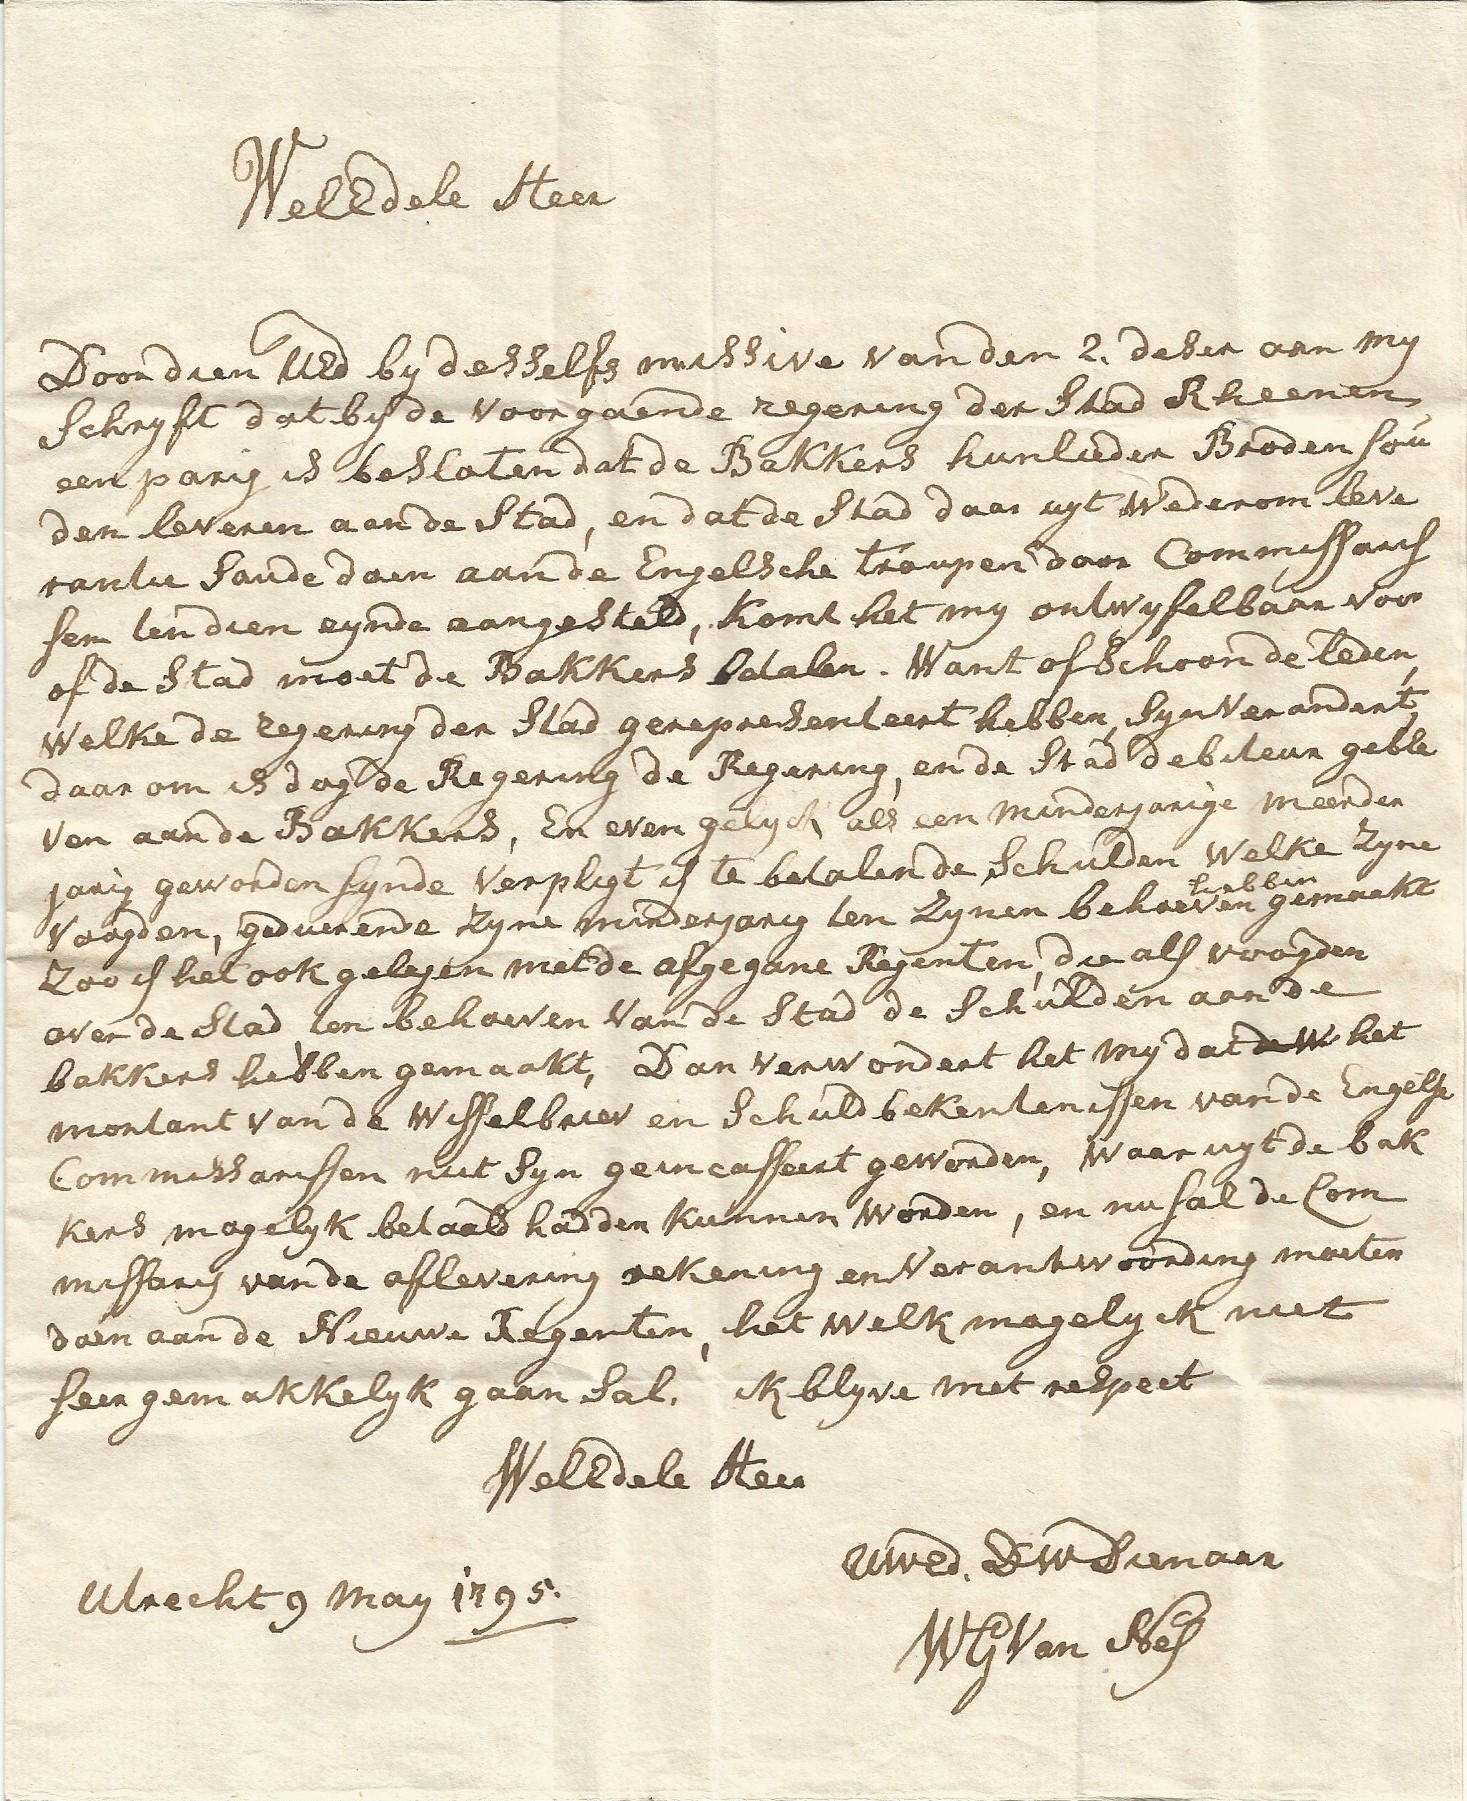 WelEdele Heer
Doordien UEd by desselfs missive van den 2. deser aan my
Schryft dat by de voorgaende regering der Stad Rheenen
een parig is besloten dat de Bakkers hunlieder Broden sou
den leveren aan de Stad, en dat de Stad daar uyt wederom leve
rantie Soude doen aan de Engelsche troupen door Commissaris
sen ten dien eynde aangesteld, komt het my ontwyfelbaar voor
of de Stad moet de Bakkers betalen. Want ofschoon de leden,
welke de regering der Stad gerepresenteert hebben, Syn verandert,
daarom is dog de Regering de Regering, en de Stad debiteur geble
ven aan de Bakkers, En even gelyck als een minderjarige meerder
jarig geworden synde verpligt is te betalen de Schulden welke zyne
voogden, geduerende zyne minderjarig ten zynen behoeven hebben gemaekt
Zoo is het ook gelegen met de afgegane Regenten, die als voogden
over de Stad ten behoeven van de Stad de Schulden aan de
bakkers hebben gemaakt, Dan verwondert het my dat de W het
montant van de Wisselbriev en Schuldbekentenissen van de Engelse
Commissarissen niet Syn geincasseert geworden, waar uyt de bak
kers mogelyk betaald hadden kunnen worden, en nu sal de Com
missaris van de aflevering rekening en verantwoording moeten
doen aan de Nieuwe Regenten, het welk mogelyck niet
seer gemakkelyk gaan Sal. ik blyve met respect
WelEdele Heer
UWEd. DW Dienaar
Utrecht 9 May 1795.
WG Van Nes